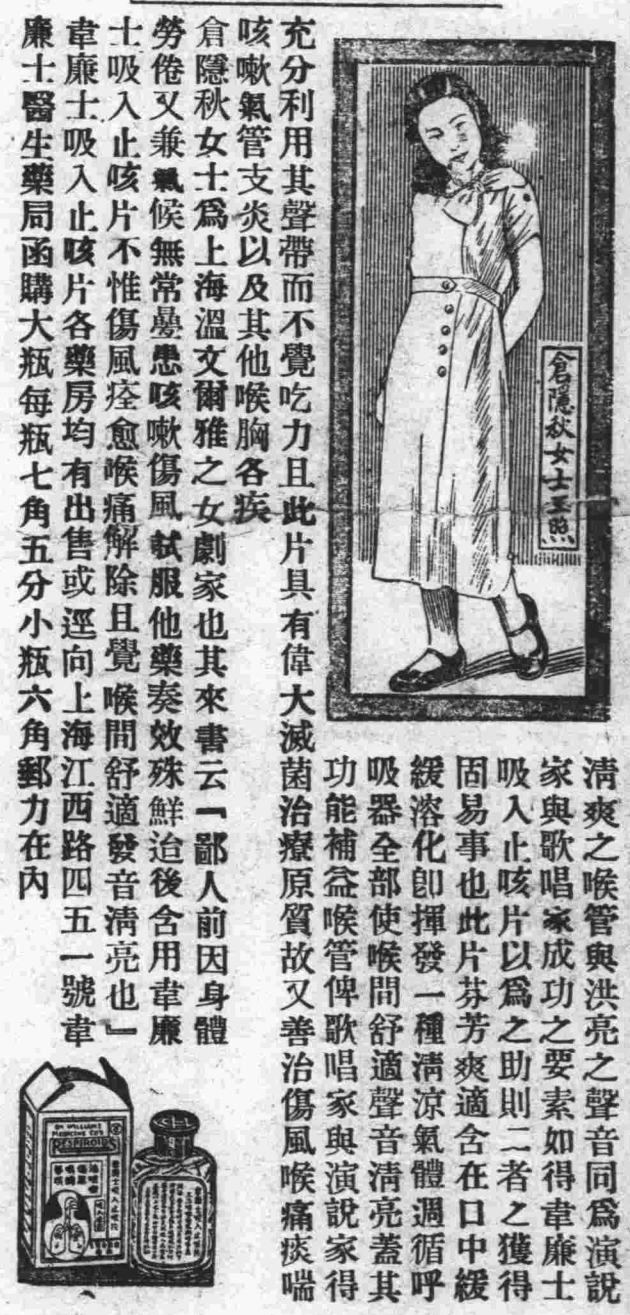 倉隱秋女士玉照
清爽之喉管與洪亮之聲音同爲演說
家與歌唱家成功之要素如得韋廉士
吸入止咳片以爲之助則二者之獲得
固易事也此片芬芳爽適含在口中緩
緩溶化卽揮發一種清涼氣體週循呼
吸器全部使喉間舒適聲音清亮蓋其
功能補益喉管俾歌唱家與演說家得
充分利用其聲帶而不覺吃力且此片具有偉大滅菌治療原質故又善治傷風喉痛痰喘
咳嗽氣管支炎以及其他喉胸各疾
倉隱秋女士爲上海溫文爾雅之女劇家也其來書云「鄙人前因身體
勞倦又兼氣候無常曇患咳嗽傷風試服他藥奏效殊鮮迨後含用韋廉
士吸入止咳片不惟傷風痊愈喉痛解除且覺喉間舒適發音清亮也」
韋廉士吸入止咳片各藥房均有出售或逕向上海江西路四五一號韋
廉士醫生藥局函購大瓶每瓶七角五分小瓶六角郵力在內
DR WILLIAMS
MEDICINE CO'S
RESPIROIDS